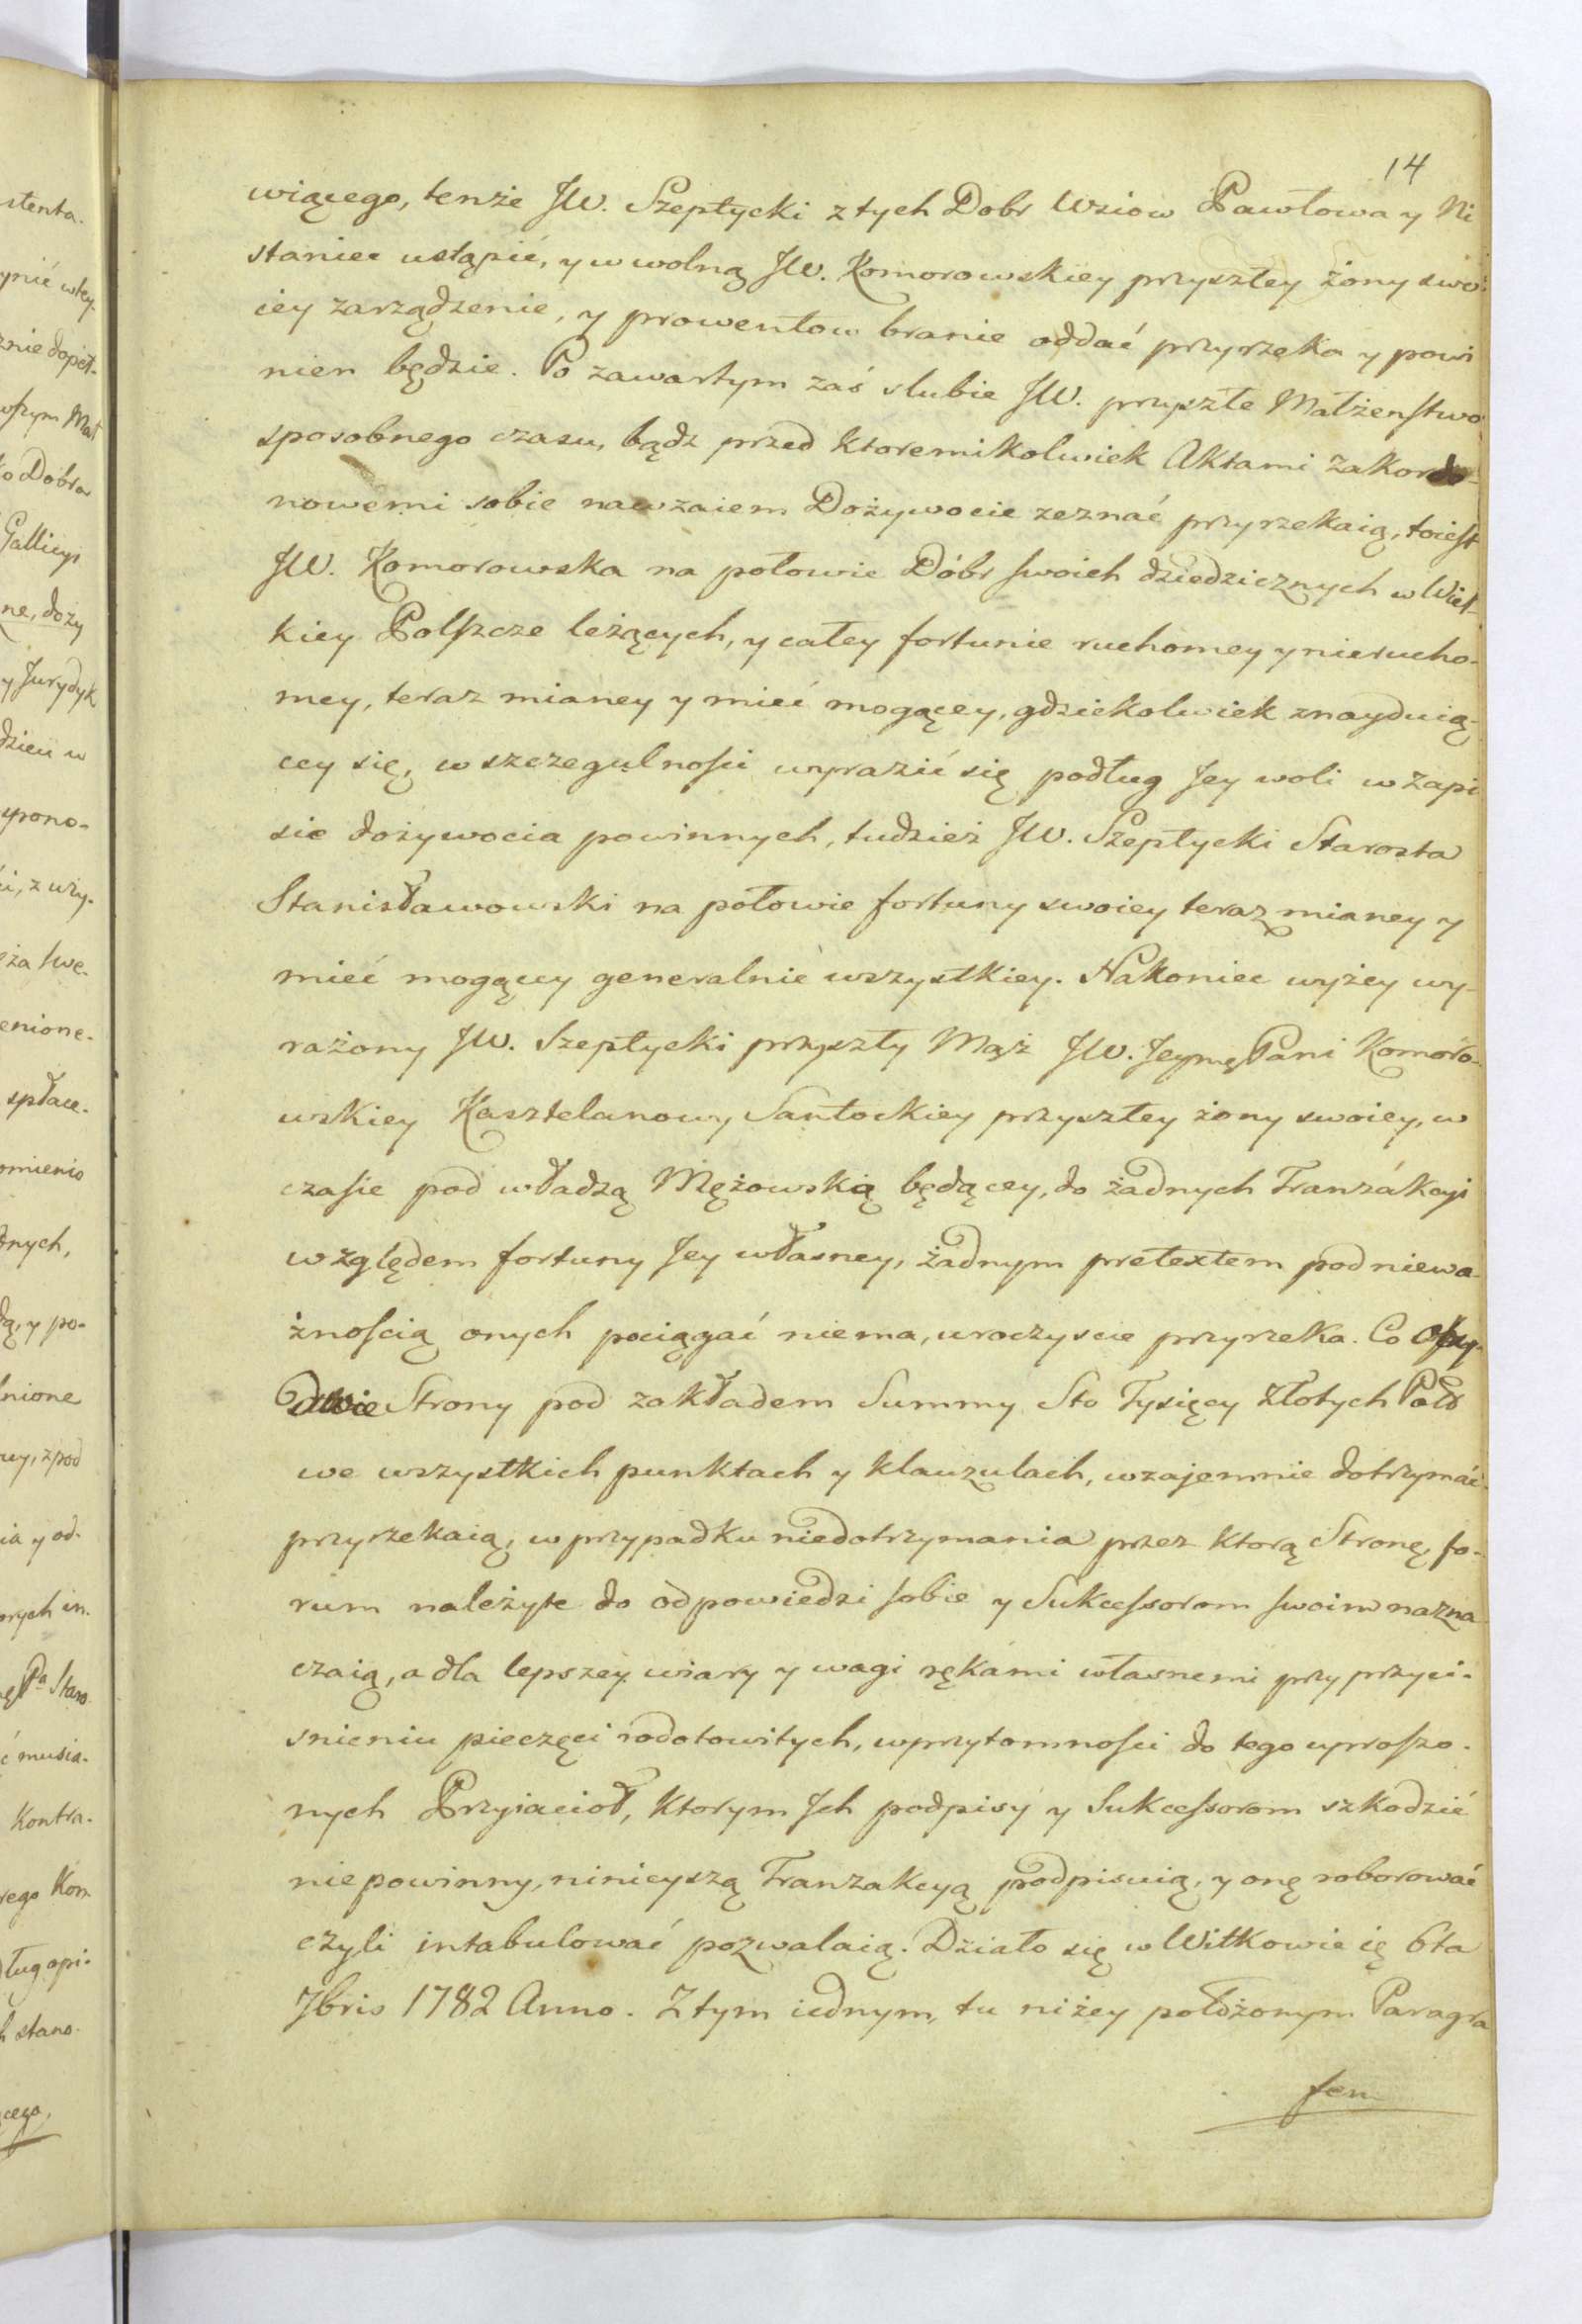 14
wiącego, tenże JW. Szeptycki z tych Dobr Uziow Pawłowa y Ni
staniec ustąpić, y w wolną JW. Komorowskiey przyszłey żony swo
iey zarządzenie, y prowentow branie oddać przyrzeka y powi
nien będzie. Po zawartym zaś slubie JW. przyszłe Małżenstwo
sposobnego czasu, bądz przed ktoremikolwiek Aktami zakordo-
nowemi sobie nawzaiem Dożywocie zeznać przyrzekaią, toiest
JW. Komorowska na połowie Dóbr swoich dziedzicznych w Wiel-
kiey Polszcze leżących, y całey fortunie ruchomey y nierucho-
mey, teraz mianey y mieć mogącey, gdziekolwiek znayduią-
cey się, w szczegulności wyrazić się podług Jey woli w zapi
sie dożywocia powinnych, tudzież JW. Szeptycki Starosta
Stanisławowski na połowie fortuny swoiey teraz mianey y
mieć mogącey generalnie wszystkiey. Nakoniec wyżey wy-
rażony JW. Szeptycki przyszły Mąż JW. Jeymę Pani Komoro-
wskiey Kasztelanowy Santockiey przyszłey żony swoiey, w
czasie pod władzą Mężowską będącey, do żadnych Tranzákcyi
względem fortuny Jey własney, żadnym pretextem pod niewa-
żnością onych pociągać niema, uroczyscie przyrzeka. Co
dwie Strony pod zakładem Summy Sto Tysięcy Złotych Pols
we wszystkich punktach y klauzulach, wzajemnie dotrzymáć
przyrzekaią, w przypadku niedotrzymania przez ktorą Stronę, fo-
rum należyte do odpowiedzi sobie y Sukcessorom swoim nazna
czaią, a dla lepszey wiary y wagi rękámi własnemi przy przyci-
snieniu pieczęci rodotowitych, w przytomności do tego uproszo-
nych Przyiacioł, ktorym Jch podpisy y Sukcessorom szkodzić
nie powinny, ninieyszą Tranzakcyą podpisuią, y onę roborować
czyli intabulować pozwalaią. Działo się w Witkowie ię 6ta
7bris 1782 Anno. Z tym iednym, tu niżey położonym Paragra
fem

stenta.
ynić wtey.
znie dopeł-
wszym Mał
ko Dobra
Gallicyi
ne, doży
y Jurydyk
dzieii w
ypono-
ci, z uży-
ża swe-
enione-
spłace-
omienio
dnych,
dą, y po-
lnione
wy, z pod
ia y od-
nych in-
Pa Staro
ć musia-
Kontra-
rego Kom
ług opi-
h stano-
cego,